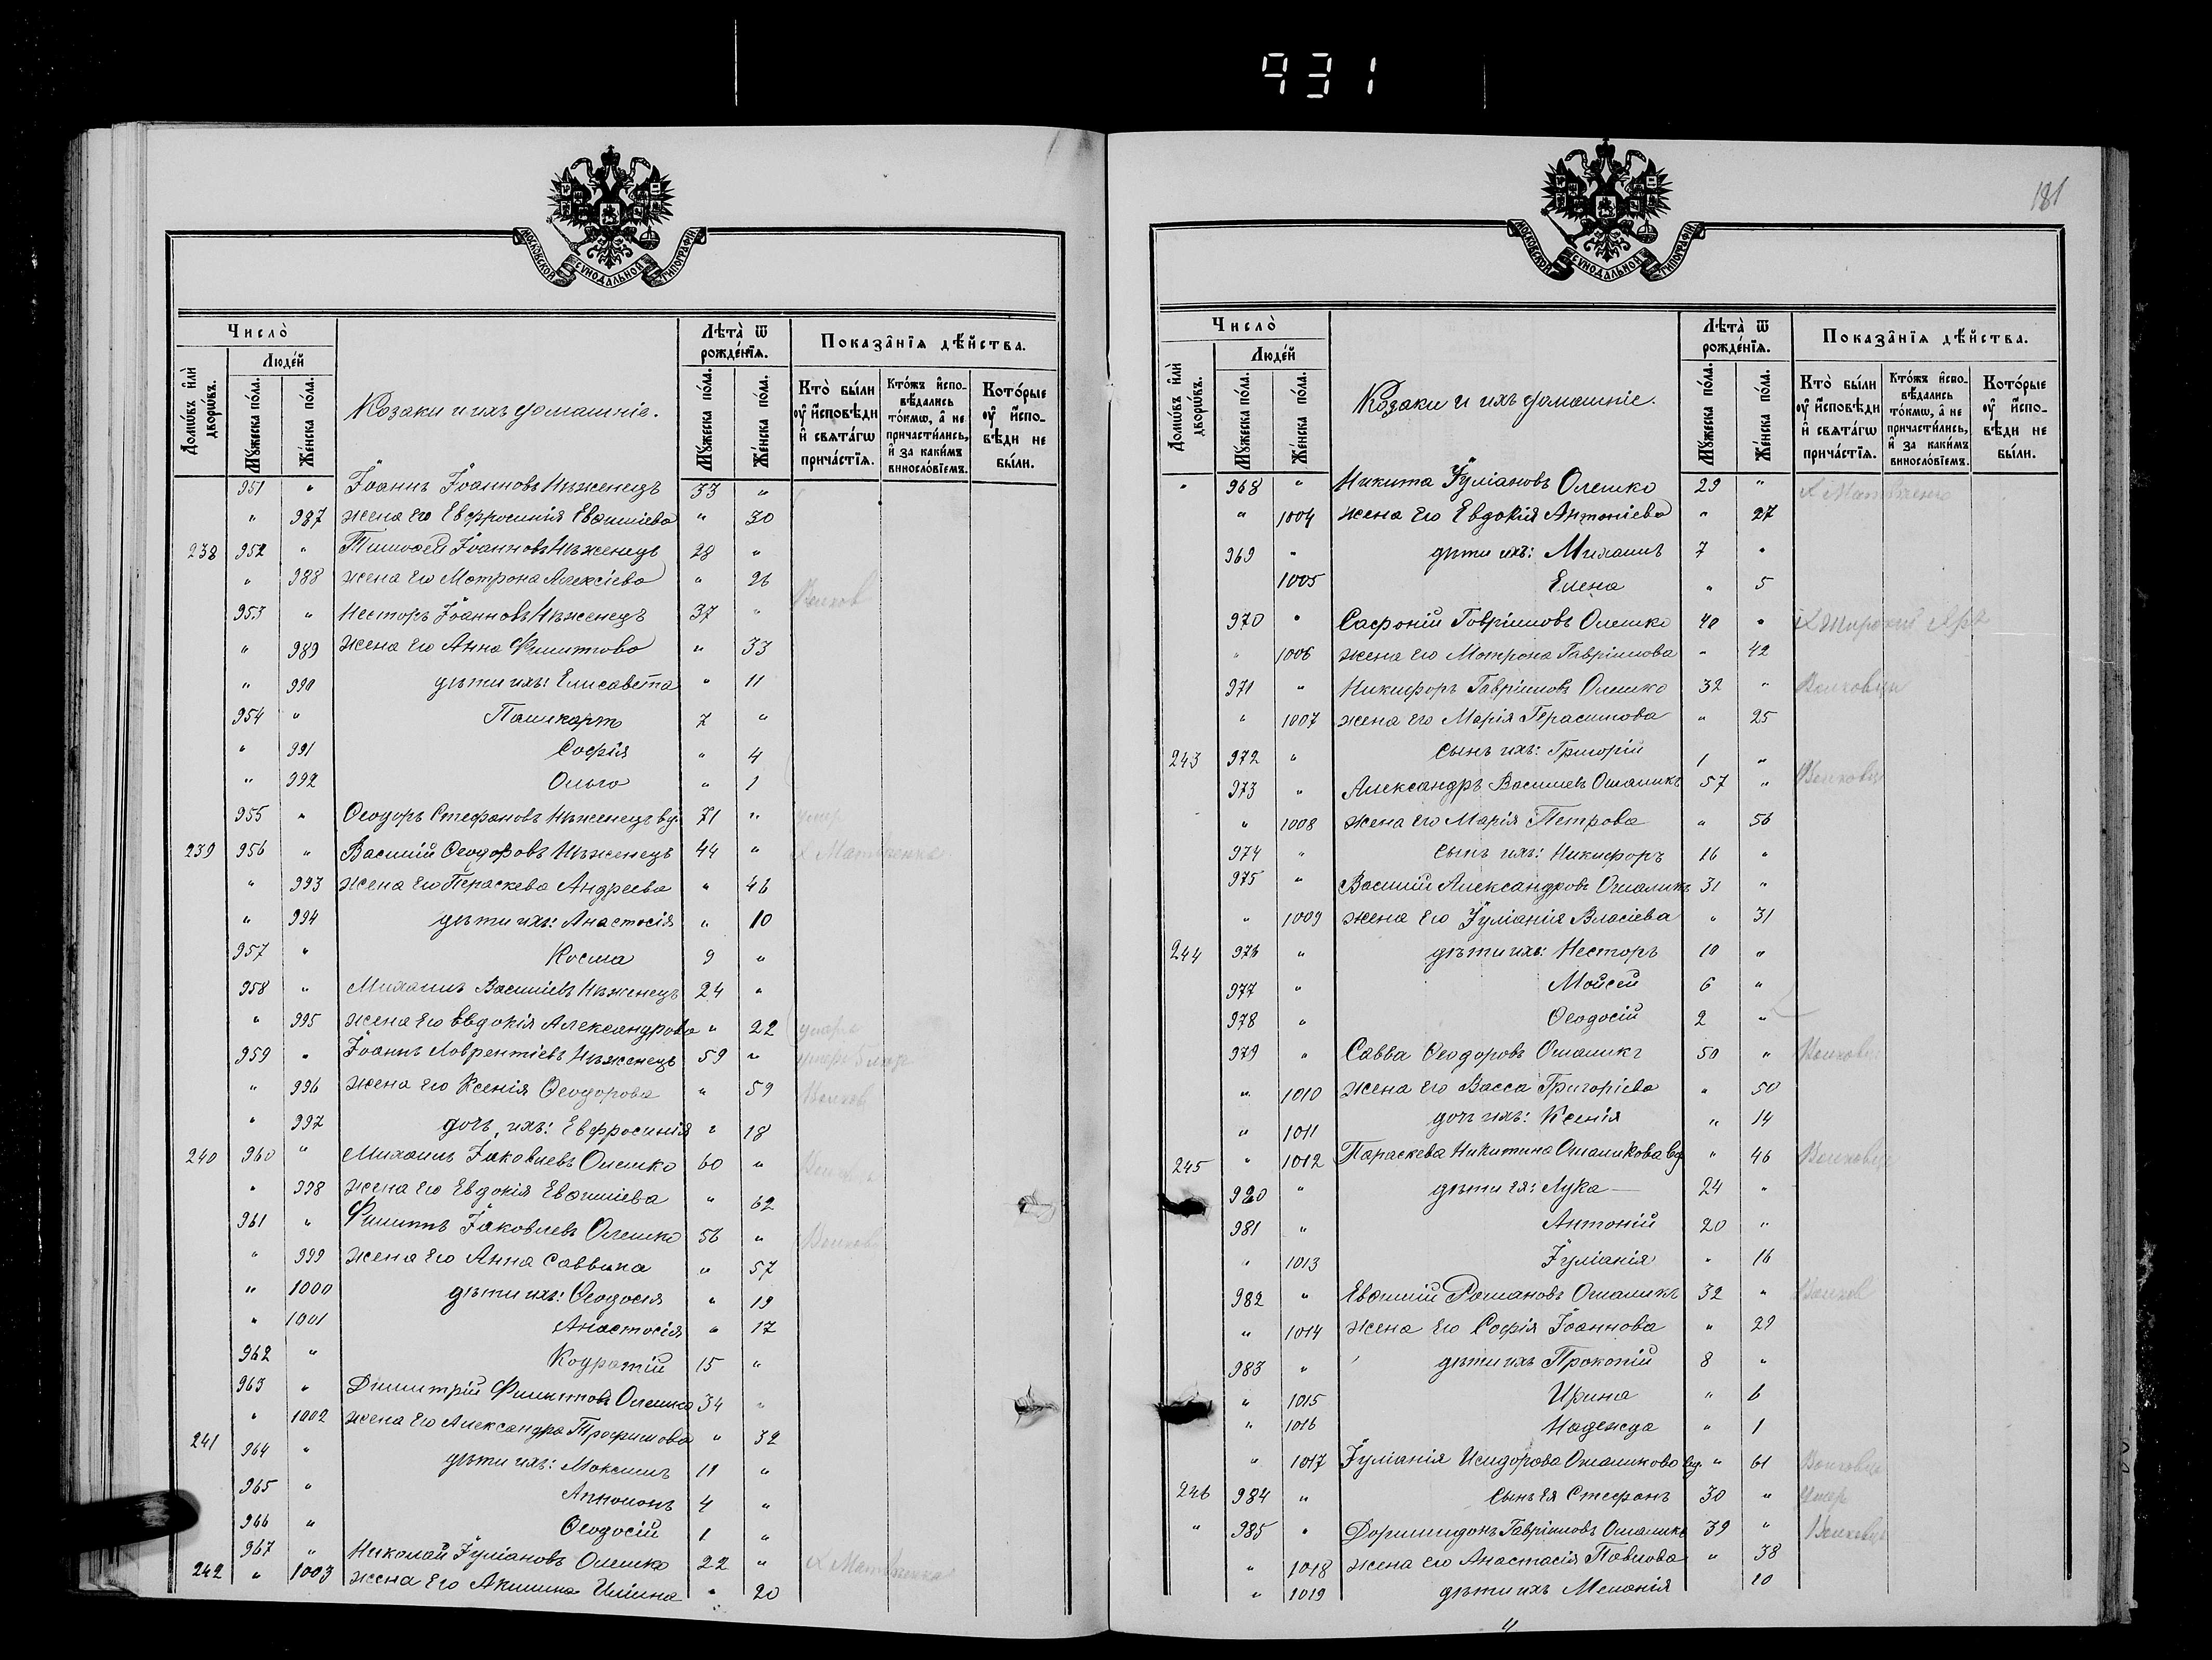 931
МОСКОВСКОЙ СѴНОДАЛЬНОЙ ТИПОГРАФІИ
Число̀
Лѣта̀ ѿ рожде́нїѧ.
Показа̂нїѧ дѣ́йства.
Домѡ́въ и҆лѝ дворѡ́въ.
Люде́й
Мꙋ́жеска по́ла.
Же́нска по́ла.
Козаки и ихъ домашніе.
Мꙋ́жеска по́ла.
Же́нска по́ла.
Кто̀ бы́ли ᲂу҆ и҆сповѣди и҆ свѧта́гѡ прича́стїѧ.
Кто́жъ и҆сповѣдались то́кмѡ, а҆ не причасти́лись, и҆ за каки́мъ винослⷪ́вїемъ.
Кото́рые ᲂу҆ и҆сповѣди не бы́ли.
951 " Іоаннъ Іоанновъ Нѣженецъ 33 "
" 987 жена его Евфросинія Евѳиміева " 30
238 952 " Тимоѳей Іоанновъ Нѣженецъ 28 "
" 988 жена его Мотрона Алексіева " 26
953 " Несторъ Іоанновъ Нѣженецъ 37 "
" 989 жена его Анна Филиппова " 33
" 990 дѣти ихъ: Елисавета " 11
954 " 7 "
" 991 Софія " 4
" 992 Ольга " 1
955 " Ѳеодоръ Стефановъ Нѣженецъ вд. 71 " умер
239 956 " Василій Ѳеодоровъ Нѣженецъ 44 " х Матвѣенка
" 993 жена его Параскева Андреева " 46
" 994 дѣти ихъ: Анастасія " 10
957 " Косма 9 "
958 " Михаилъ Василіевъ Нѣженецъ 24 "
" 995 жена его Евдокія Александрова " 22 умерла
959 " Іоаннъ Лаврентіевъ Нѣженецъ 59 "
" 996 жена его Ксенія Ѳеодорова " 59
" 997 дочь ихъ: Евфросинія " 18
240 960 " Михаилъ Іаковлевъ Олешко 60 "
" 998 жена его Евдокія Евѳиміева " 62
961 " Филиппъ Іаковлевъ Олешко 56 "
" 999 жена его Анна Саввина " 57
" 1000 дѣти ихъ: Ѳеодосія " 19
" 1001 Анастасія " 17
962 " Кодратій 15 "
963 " Димитрій Филипповъ Олешко 34 "
" 1002 жена его Александра Трофимова " 32
241 964 " дѣти ихъ: Максимъ 11 "
965 " 4 "
966 " Ѳеодосій 1 "
967 " Николай Іуліановъ Олешко 22 " х Матвѣенка
242 " 1003 жена его Акилина Иліина " 20
181
МОСКОВСКОЙ СѴНОДАЛЬНОЙ ТИПОГРАФІИ
Число̀
Лѣта̀ ѿ рожде́нїѧ.
Показа̂нїѧ дѣ́йства.
Домѡ́въ и҆лѝ дворѡ́въ.
Люде́й
Мꙋ́жеска по́ла.
Же́нска по́ла.
Козаки и ихъ домашніе.
Мꙋ́жеска по́ла.
Же́нска по́ла.
Кто̀ бы́ли ᲂу҆ и҆сповѣди и҆ свѧта́гѡ прича́стїѧ.
Кто́жъ и҆сповѣдались то́кмѡ, а҆ не причасти́лись, и҆ за каки́мъ винослⷪ́вїемъ.
Кото́рые ᲂу҆ и҆сповѣди не бы́ли.
" 968 " Никита Іуліановъ Олешко 29 "
" 1004 жена его Евдокія Антоніева " 27
969 " дѣти ихъ: Михаилъ 7 "
1005 Елена " 5
970 " Сафоній Гавріиловъ Олешко 40 "
" 1006 жена его Мотрона Гавріилова " 42
971 " Никифоръ Гавріиловъ Олешко 32 " Волковцы
" 1007 жена его Марія Герасимова " 25
243 972 " сынъ ихъ: Григорій 1 "
973 " Александръ Василіевъ Ошаликъ 57 " Волковцы
" 1008 жена его Марія Петрова " 56
974 " сынъ ихъ: Никифоръ 16 "
975 " Василій Александровъ Ошаликъ 31 "
" 1009 жена его Іуліанія Власіева " 31
244 976 " дѣти ихъ: Несторъ 10 "
977 " Мойсей 6 "
978 " Ѳеодосій 2 "
979 " Савва Ѳеодоровъ Ошаликъ 50 " Волковцы
" 1010 жена его Васса Григоріева " 50
" 1011 дочь ихъ: Ксенія " 14
245 " 1012 Параскева Никитина Ошаликова вд " 46 Волковцы
980 " дѣти ея: Лука 24 "
981 " Антоній 20 "
" 1013 Іуліанія " 16
982 " Евѳимій Романовъ Ошаликъ 32 "
" 1014 жена его Софія Іоаннова " 29
983 " дѣти ихъ Прокопій 8 "
" 1015 Ирина " 6
" 1016 Надежда " 1
" 1017 Іуліанія Исидорова Ошаликова вд. " 61 Волковцы
246 984 " сынъ ея Стефанъ 30 " умер
" 985 " Доримидонъ Гавріиловъ Ошаликъ 39 " Волковцы
" 1018 жена его Анастасія Павлова " 38
" 1019 дѣти ихъ Меланія 10